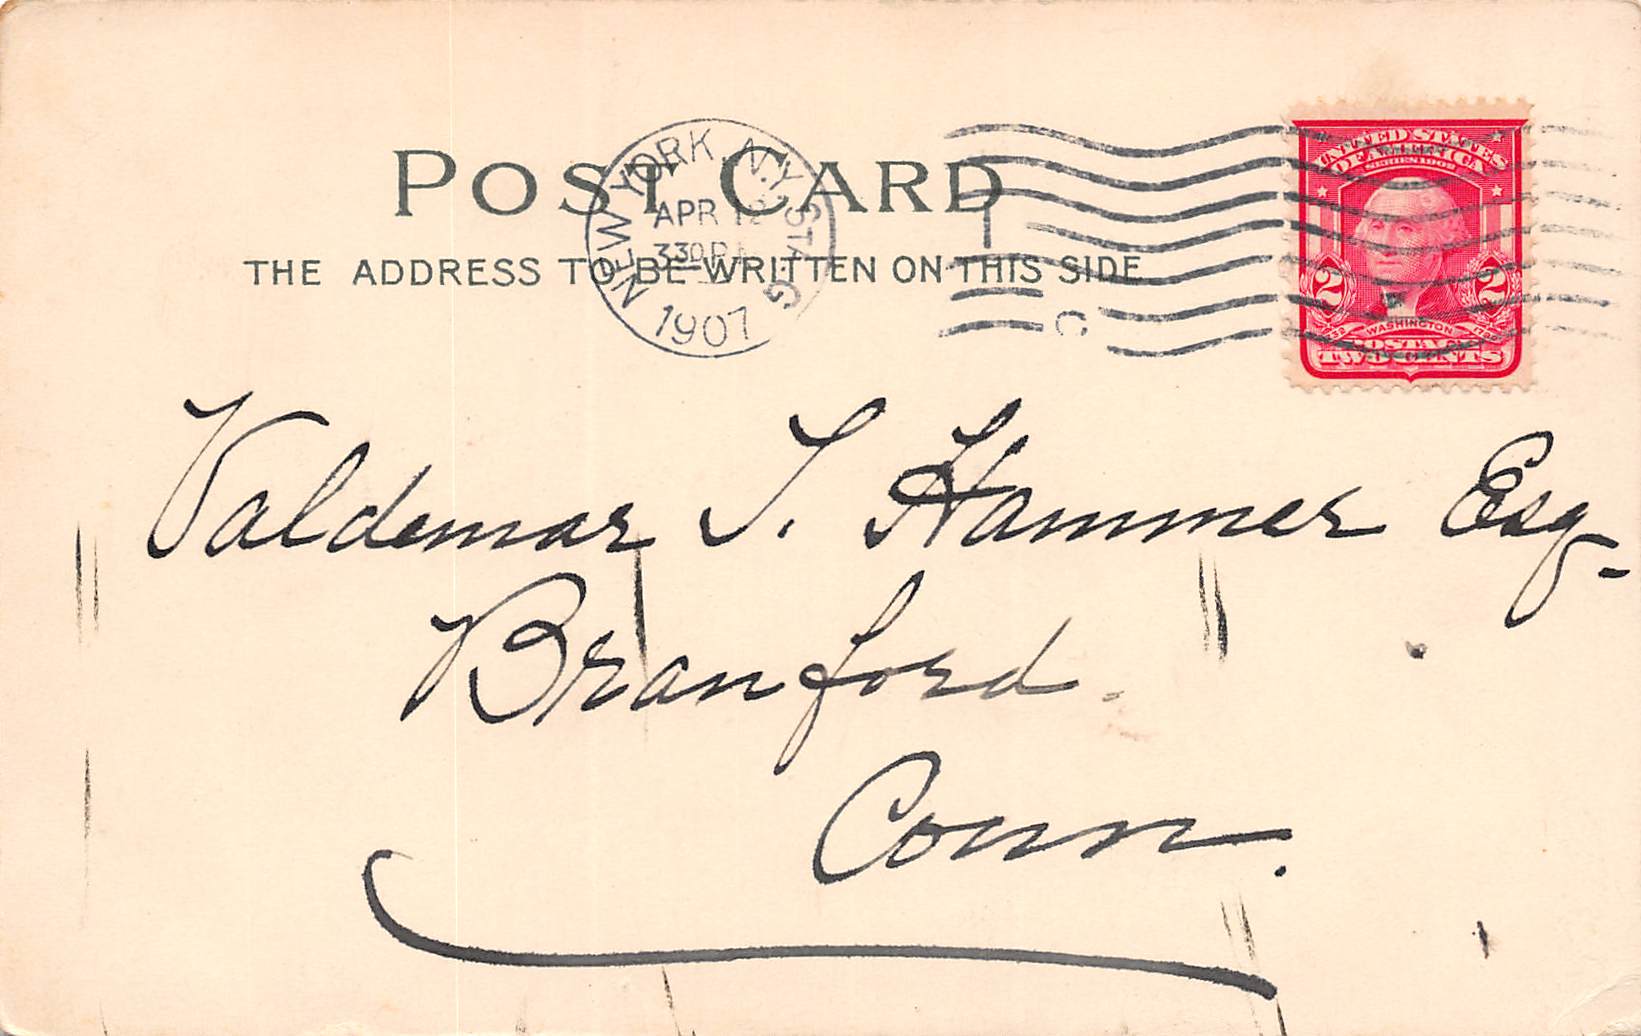 POST CARD
THE ADDRESS TO BE WRITTEN ON THIS SIDE
NEW YORK N.Y. STA. G
APR 12
330 P
1907
UNITED STATES
OF AMERICA
SERIES 1902
2 2
WASHINGTON
POSTAGE
TWO CENTS
C
Valdemar T. Hammer Esq.
Branford.
Conn.